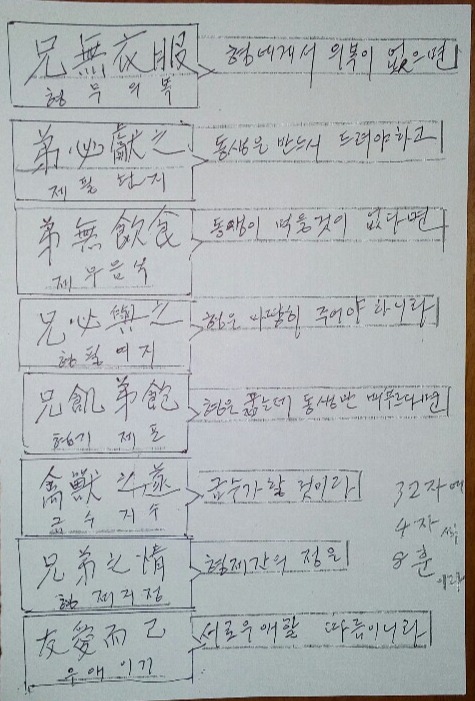 兄無衣服 형에게서 의복이 없으면
형 무 의 복
弟必獻之 동생은 반드시 드려야하고
제 필 헌 지
弟無飮食 동생이 먹을것이 없다면
제 무 음 식
兄必與之 형은 마땅히 주어야 하니라
형 필 여 지
兄飢弟飽 형은 굶는데 동생만 배부르다면
형기 제 포
禽獸之遂 금수가할 것이라
금 수 지 수
兄弟之情 형제간의 정은
형 제 지 정
友愛而己 서로우애할 따름이니라
우 애 이 기
32자에
4자 씩
8 훈
이라